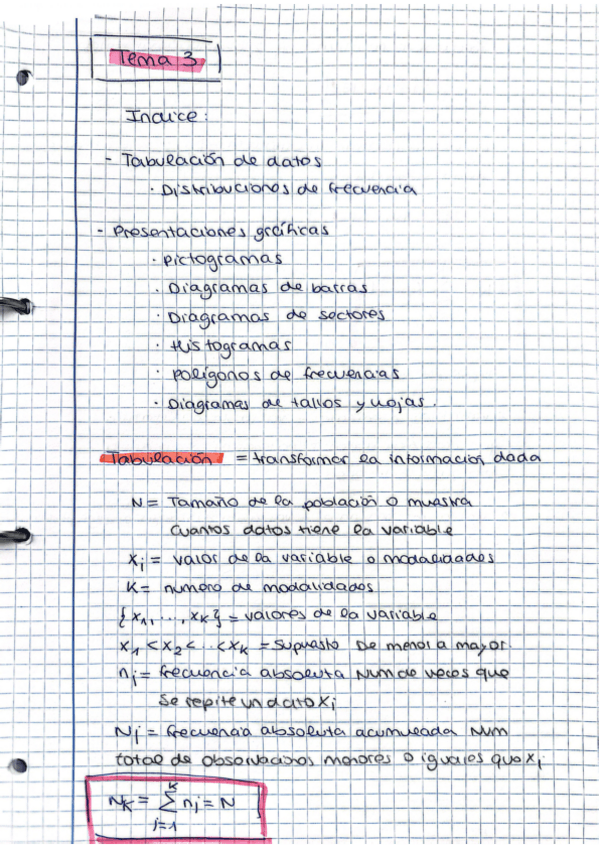 Tema 3
Indice:
- Tabulación de datos
· Distribuciones de frecuencia
- Presentaciones gráficas
· pictogramas
· Diagramas de barras
· Diagramas de sectores
· Histogramas
· polígonos de frecuencias
· Diagramas de tallos y hojas.
Tabulación = transformar la información dada
N = Tamaño de la población o muestra
cuantos datos tiene la variable
xi = valor de la variable o modalidades
K = numero de modalidades
{x1, ..., xK} = valores de la variable
x1 < x2 < ... < xK = supuesto De menor a mayor.
ni = frecuencia absoluta Num de veces que
se repite un dato xi
Ni = frecuencia absoluta acumulada Num
total de observaciones menores o iguales que xi
NK = K∑i=1 ni = N